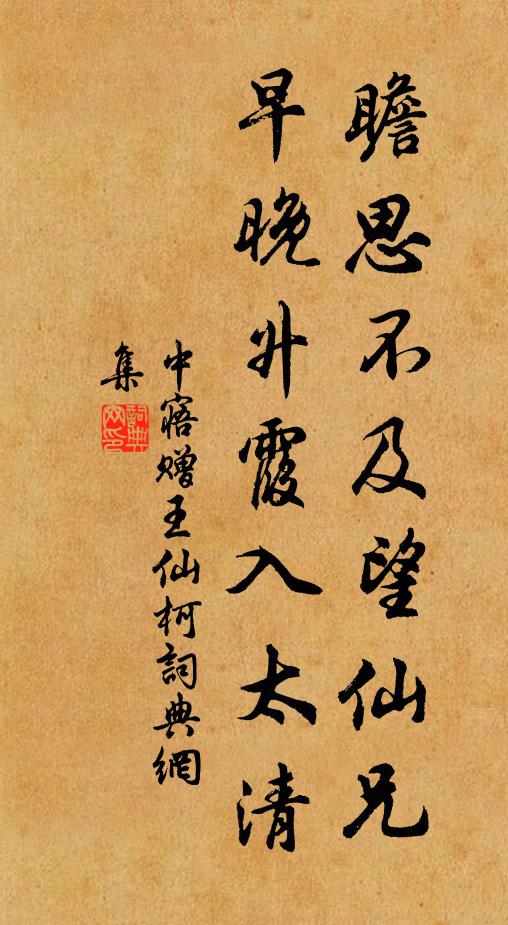 瞻思不及望仙兄
早晚升霞入太清
中寤赠王仙柯詞典網
集
詞典
网印